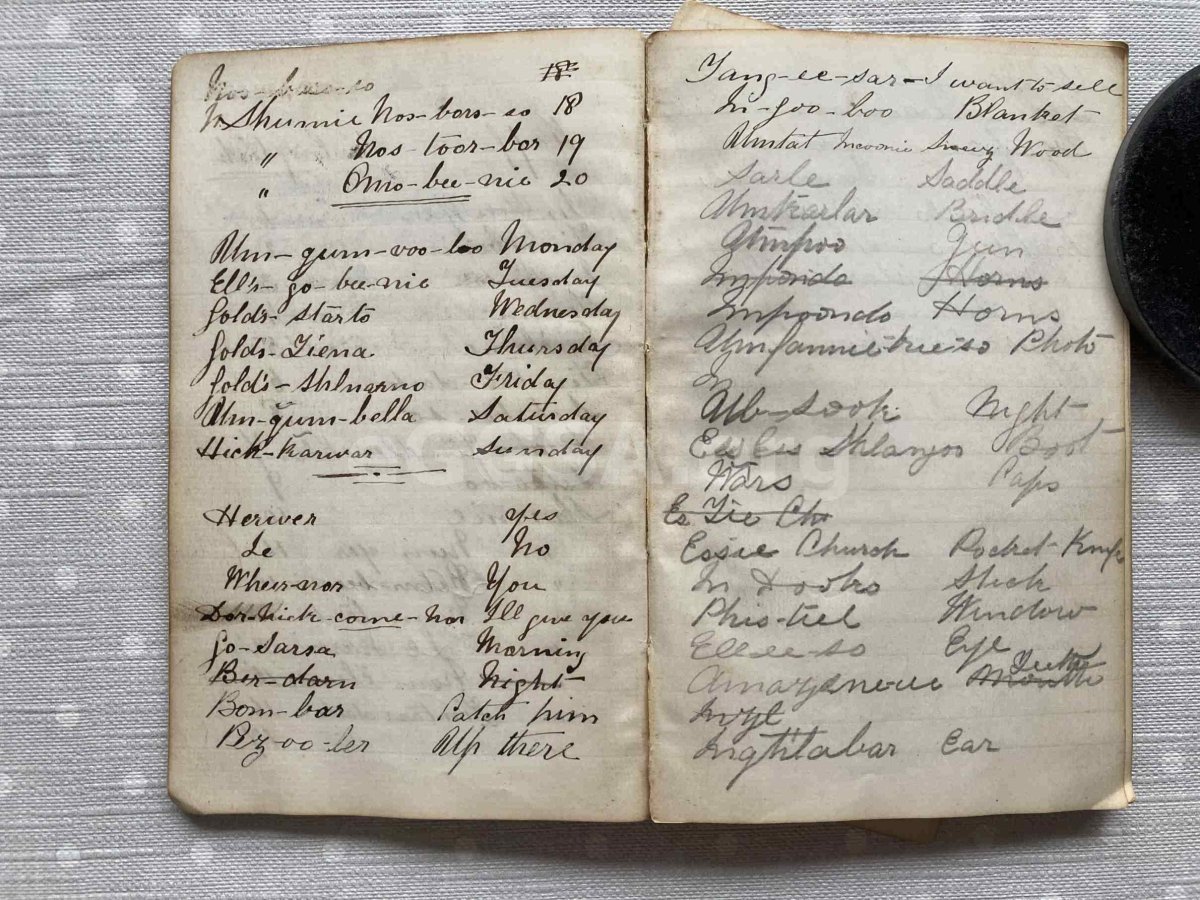 18
Shumie Nos-bors-so 18
" Nos-toor-bor 19
" Omo-bee-nie 20
Um-gum-voo-loo Monday
Ell's-go-bee-nie Tuesday
Gold's-starto Wednesday
Golds-Tiena Thursday
Gold's-Shlnarno Friday
Um-gum-bella Saturday
Hick-Karwar Sunday
Herwer Yes
Le No
Whes-nor You
Dor-nick-come-nor I'll give you
Go-Sarsa Morning
Ber-darn Night
Bom-bar Catch him
Pez-oo-ler Up there
Tang-ee-sar-I want to sell
In-goo-boo Blanket
Umtat Wood
Sarle Saddle
Umkarlar Bridle
Umpoo Gun
Imponda Horns
Impoondo Horns
Photo
Ub-sook Night
Shlangor Boot
Wars Caps
Es Tie Ch
Essie Church Pocket-Knife
In Dooks Stick
Phis-tiel Window
Ellee-so Eye
Mouth
Invyl
Ingtitabar Ear